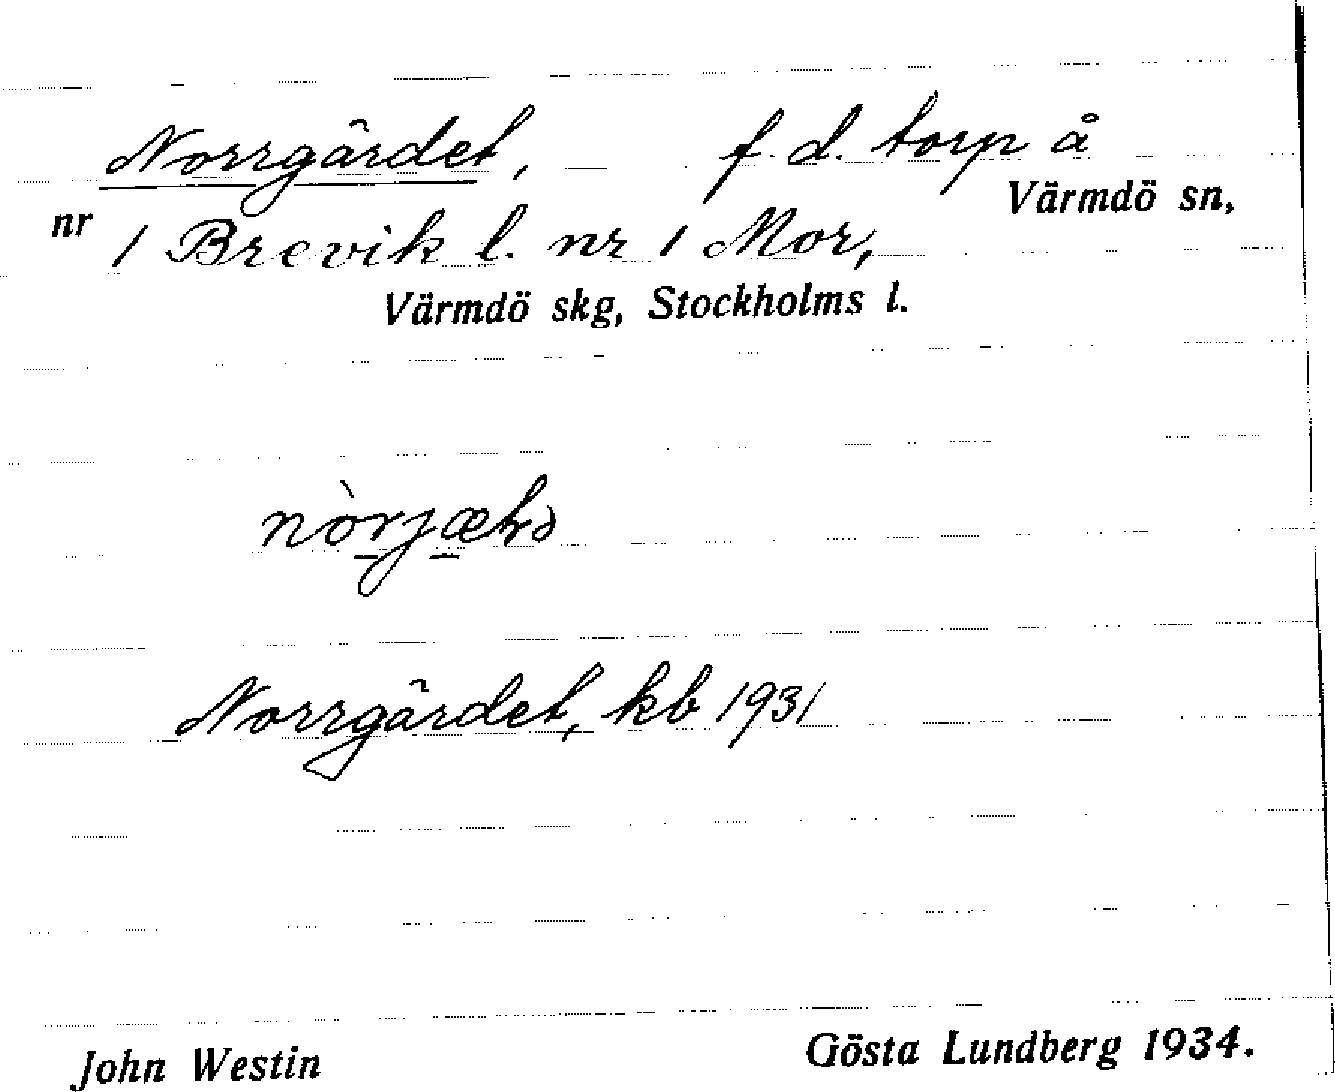 Norrgårdet, — f. d. torp å
Värmdö sn,
nr 1 Brevik l. nr 1 Mor,
Värmdö skg, Stockholms l.
Norrgårdet, kb 1931
John Westin
Gösta Lundberg 1934.